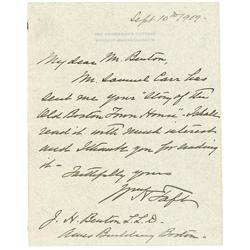 Sept. 10th 1909.
My dear Mr. Benton,
Mr. Samuel Carr has
sent me your "Story of the
Old Boston Town House". I shall
read it with much interest
and I thank you for sending
it —
Faithfully yours
Wm H Taft
J. H. Benton LL.D.
Ames Building Boston.